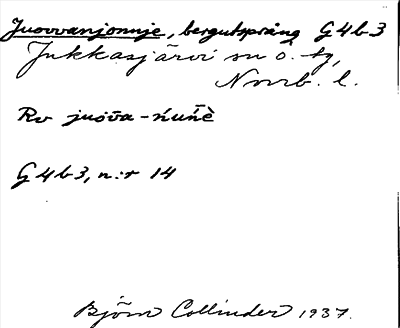 Juovvanjonnje, bergutspräng G4b3
Jukkasjärvi sn o. tg,
Norrb. l.
Rv juōv̄a-ńuńè
G4b3, n:r 14
Björn Collinder 1937.